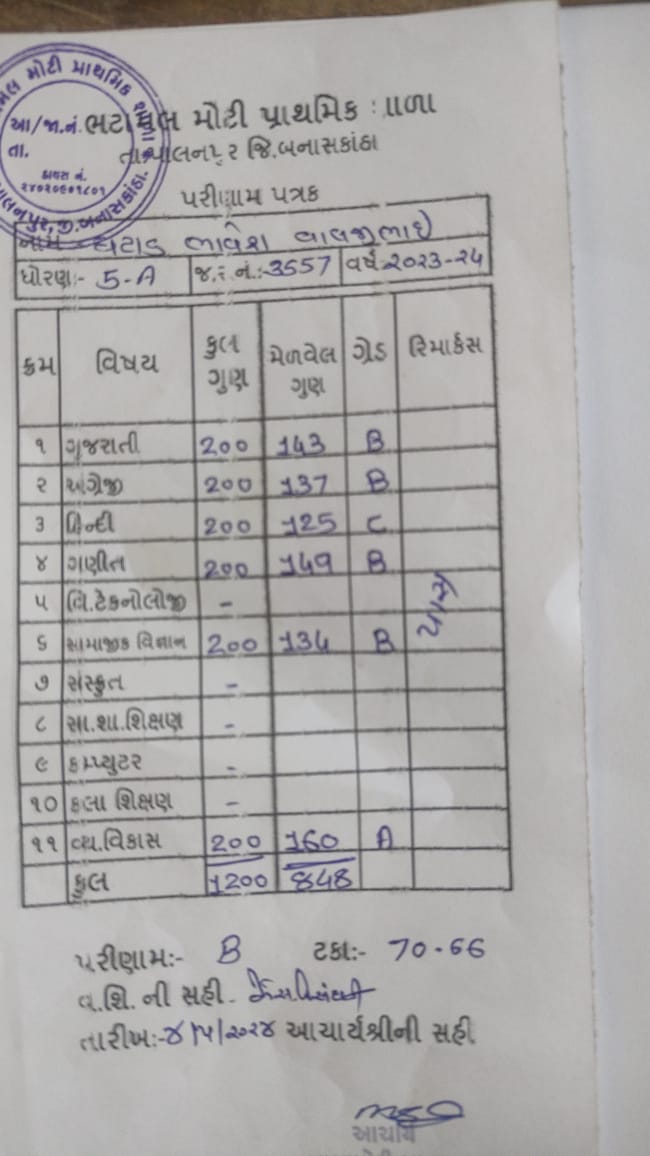 મોટી પ્રાથમિક
આ/જા.નં.
તા.
ડાયસ નં.
પાલનપુર, જી.બનાસકાંઠા.
ભટામલ મોટી પ્રાથમિક શાળા
તા.પાલનપુર જિ.બનાસકાંઠા
પરીણામ પત્રક
નામ ભાવેશ વાલજીભાઈ
ધોરણ:- 5-A જ.ર.નં.:-3557 વર્ષ:૨૦૨૩-૨૪
ક્રમ વિષય કુલ ગુણ મેળવેલ ગુણ ગ્રેડ રિમાર્કસ
૧ ગુજરાતી 200 143 B
૨ અંગ્રેજી 200 137 B
૩ હિન્દી 200 125 C
૪ ગણીત 200 149 B
૫ વિ.ટેકનોલોજી -
૬ સામાજીક વિજ્ઞાન 200 134 B
પાસ
૭ સંસ્કૃત -
૮ સા.શા.શિક્ષણ -
૯ કમ્પ્યુટર -
૧૦ કલા શિક્ષણ -
૧૧ વ્ય.વિકાસ 200 160 A
કુલ 1200 848
પરીણામ:- B ટકા:- 70-66
વ.શિ. ની સહી.
તારીખ:-૪/૫/૨૦૨૪ આચાર્યશ્રીની સહી
આચાર્ય